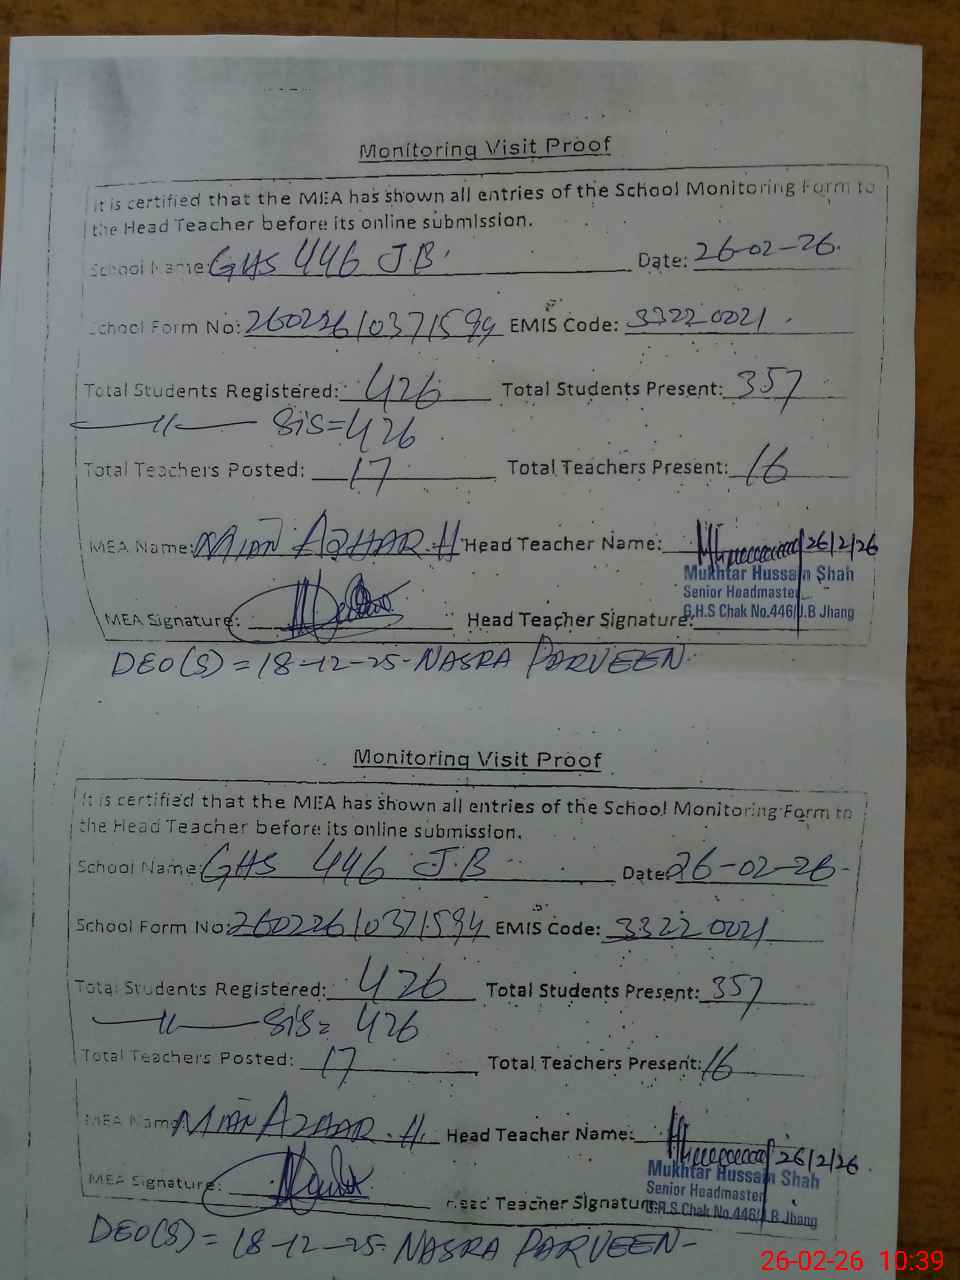 Monitoring Visit Proof
It is certified that the MEA has shown all entries of the School Monitoring Form to
the Head Teacher before its online submission.
School Name: GHS 446 J.B. Date: 26-02-26.
School Form No: 26022610371594 EMIS Code: 33220021.
Total Students Registered: 426 Total Students Present: 357
—— 11 —— SiS=426
Total Teachers Posted: 17 Total Teachers Present: 16
MEA Name: MIAN AZHAR.H Head Teacher Name: 26/2/26
Mukhtar Hussain Shah
Senior Headmaster
MEA Signature: Head Teacher Signature: G.H.S Chak No.446/J.B Jhang
DEO(S) = 18-12-25- NASRA PARVEEN.
Monitoring Visit Proof
It is certified that the MEA has shown all entries of the School Monitoring Form to
the Head Teacher before its online submission.
School Name: GHS 446 J.B Date: 26-02-26-
School Form No: 26022610371594 EMIS Code: 33220021
Total Students Registered: 426 Total Students Present: 357
—— 11 —— SiS= 426
Total Teachers Posted: 17 Total Teachers Present: 16
MEA Name MIAN AZHAR.H. Head Teacher Name: 26/2/26.
Mukhtar Hussain Shah
Senior Headmaster
MEA Signature: Head Teacher Signature: G.H.S Chak No.446/J.B Jhang
DEO(S) = 18-12-25- NASRA PARVEEN-
26-02-26 10:39